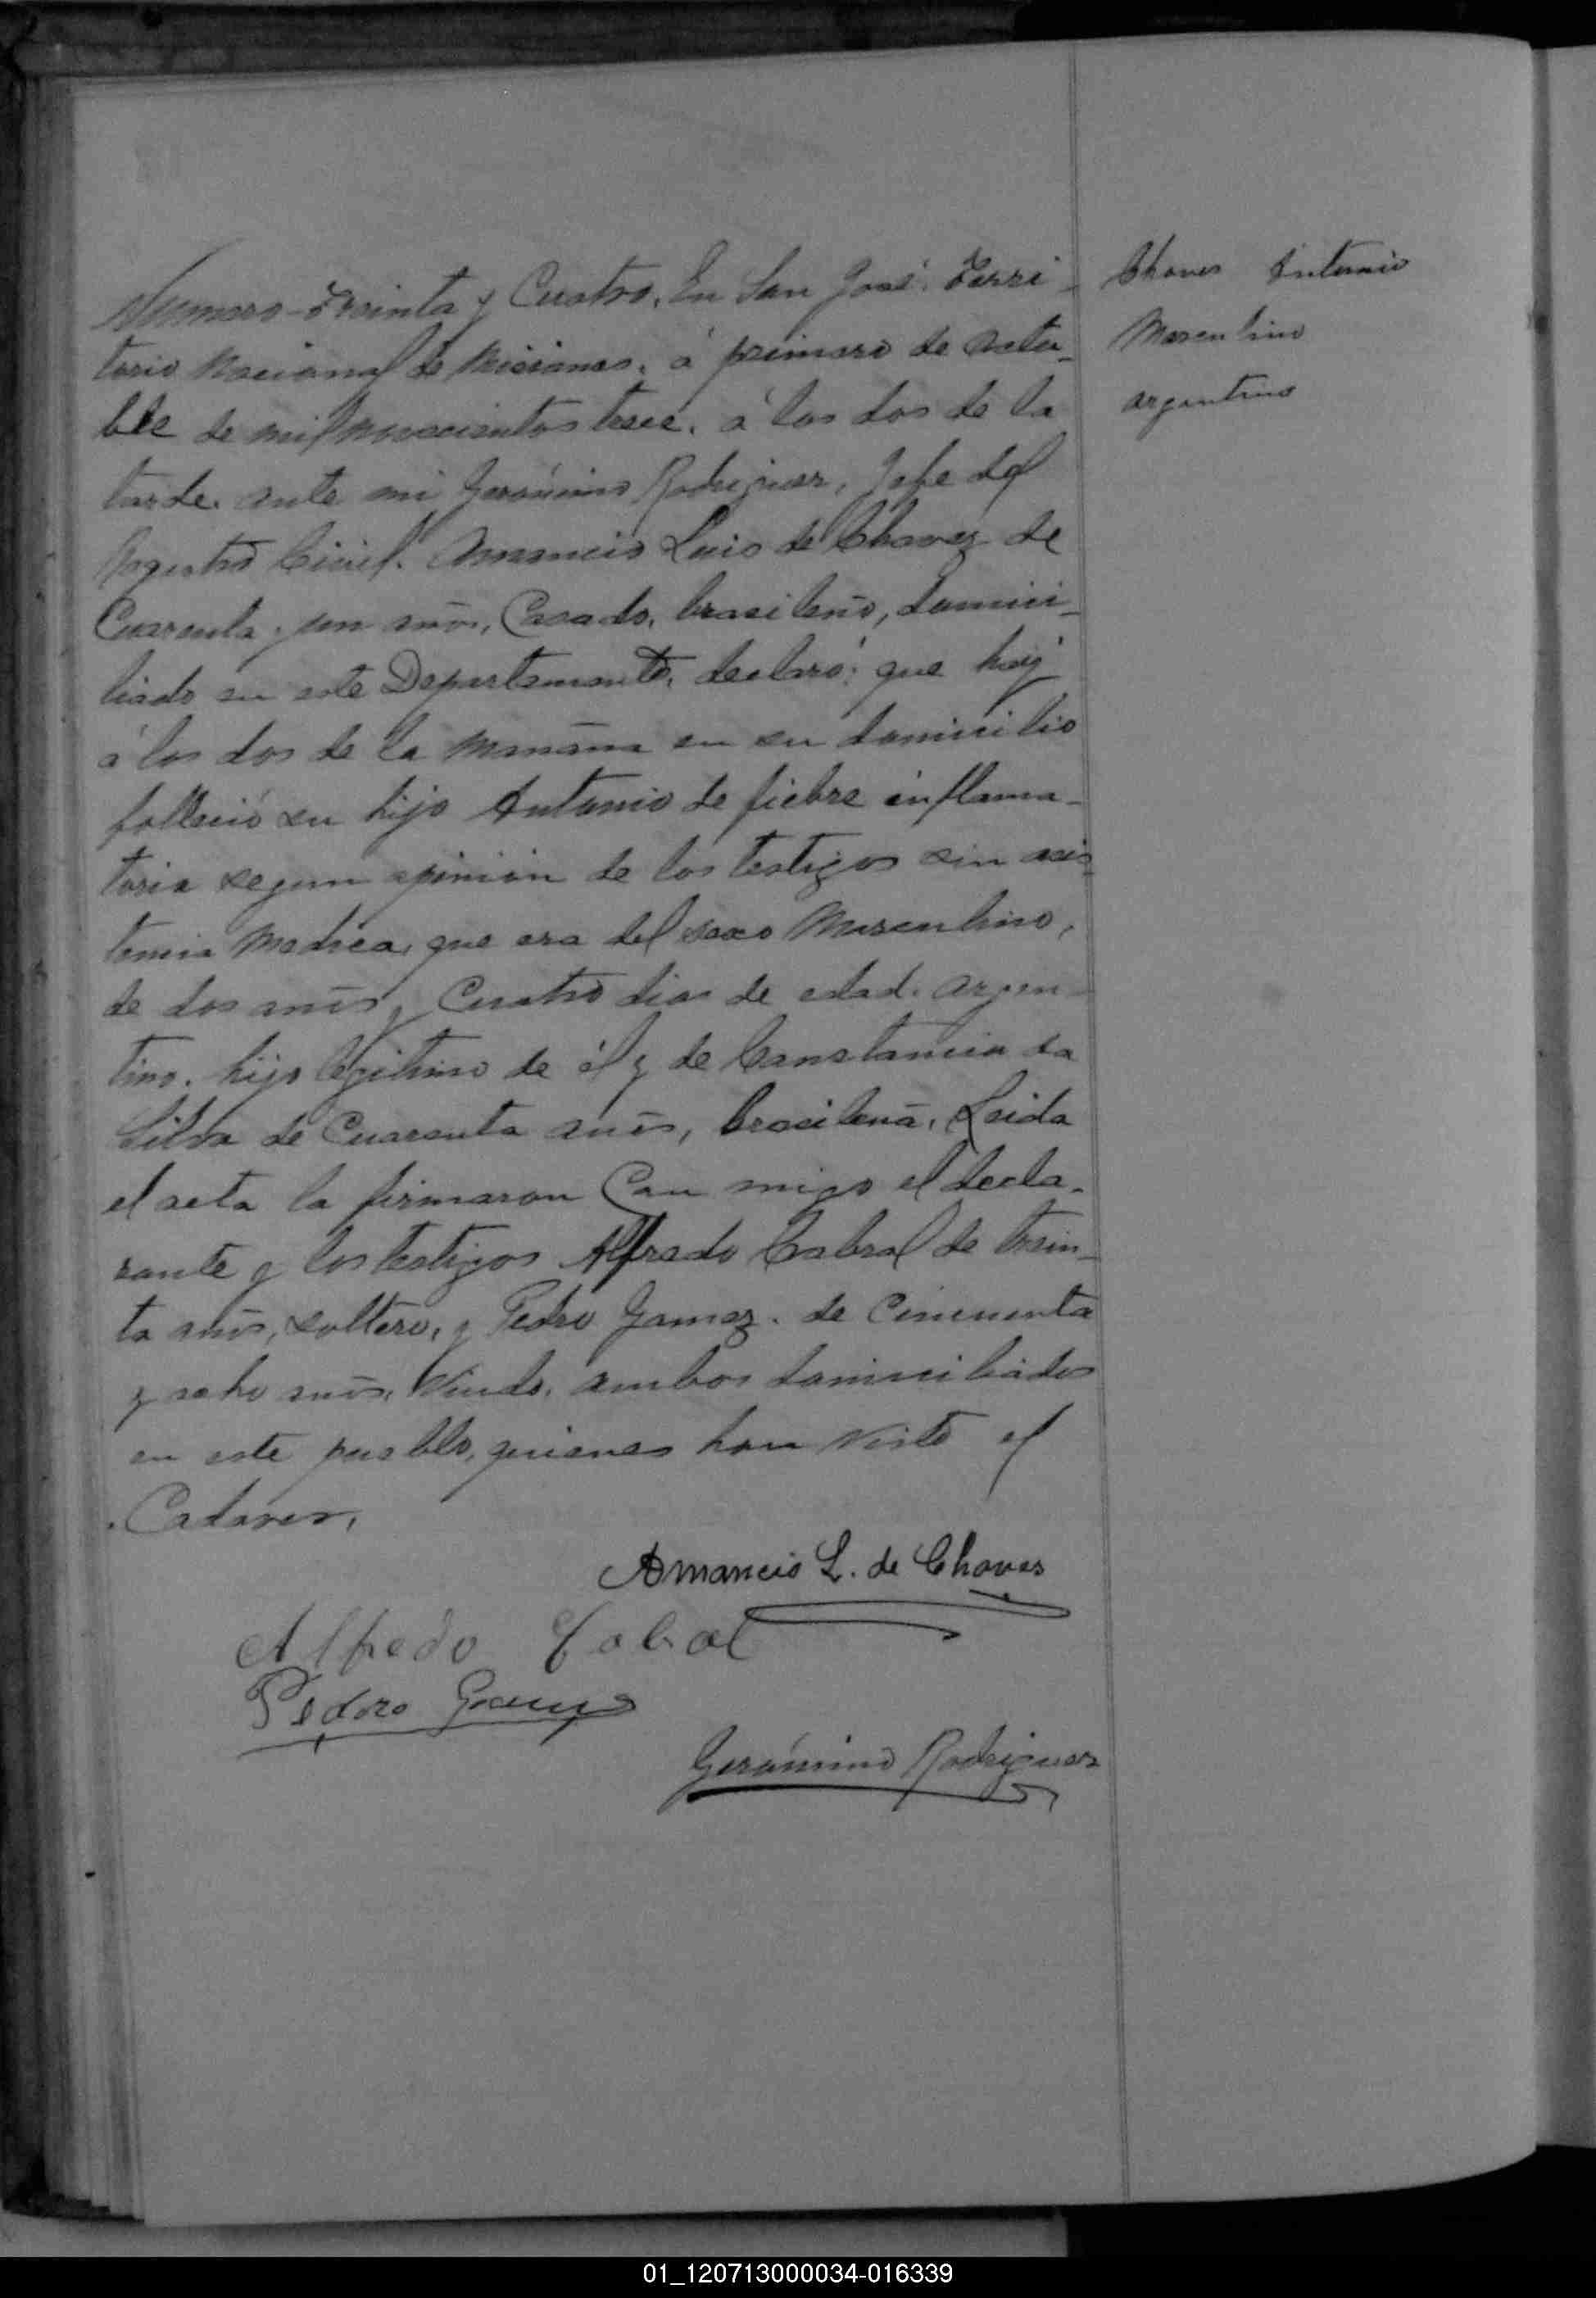 Numero Treinta y Cuatro. En San José, Terri-
torio Nacional de Misiones, á primero de Octu-
bre de mil novecientos trece, á las dos de la
tarde, ante mi Gerónimo Rodriguez, Jefe del
Registro Civil, Amancio Luis de Chavez de
Cuarenta y un años, Casado, brasileño, domici-
liado en este Departamento, declaró: que hoy
á las dos de la mañana en su domicilio
falleció su hijo Antonio de fiebre inflama-
toria segun opinión de los testigos sin asis-
tencia Medica, que era del sexo Masculino,
de dos años y Cuatro dias de edad, argen-
tino, hijo legitimo de él y de Constancia da
Silva de Cuarenta años, brasileña. Leida
el acta la firmaron Con migo el decla-
rante y los testigos Alfredo Cabral de trein-
ta años, soltero, y Pedro Gomez de Cincuenta
y ocho años, Viudo, ambos domiciliados
en este pueblo, quienes han visto el
Cadaver.
Amancio L. de Chaves
Alfredo Cabral
Pedro
Gerónimo Rodriguez
Chaves Antonio
Masculino
argentino
01_120713000034-016339